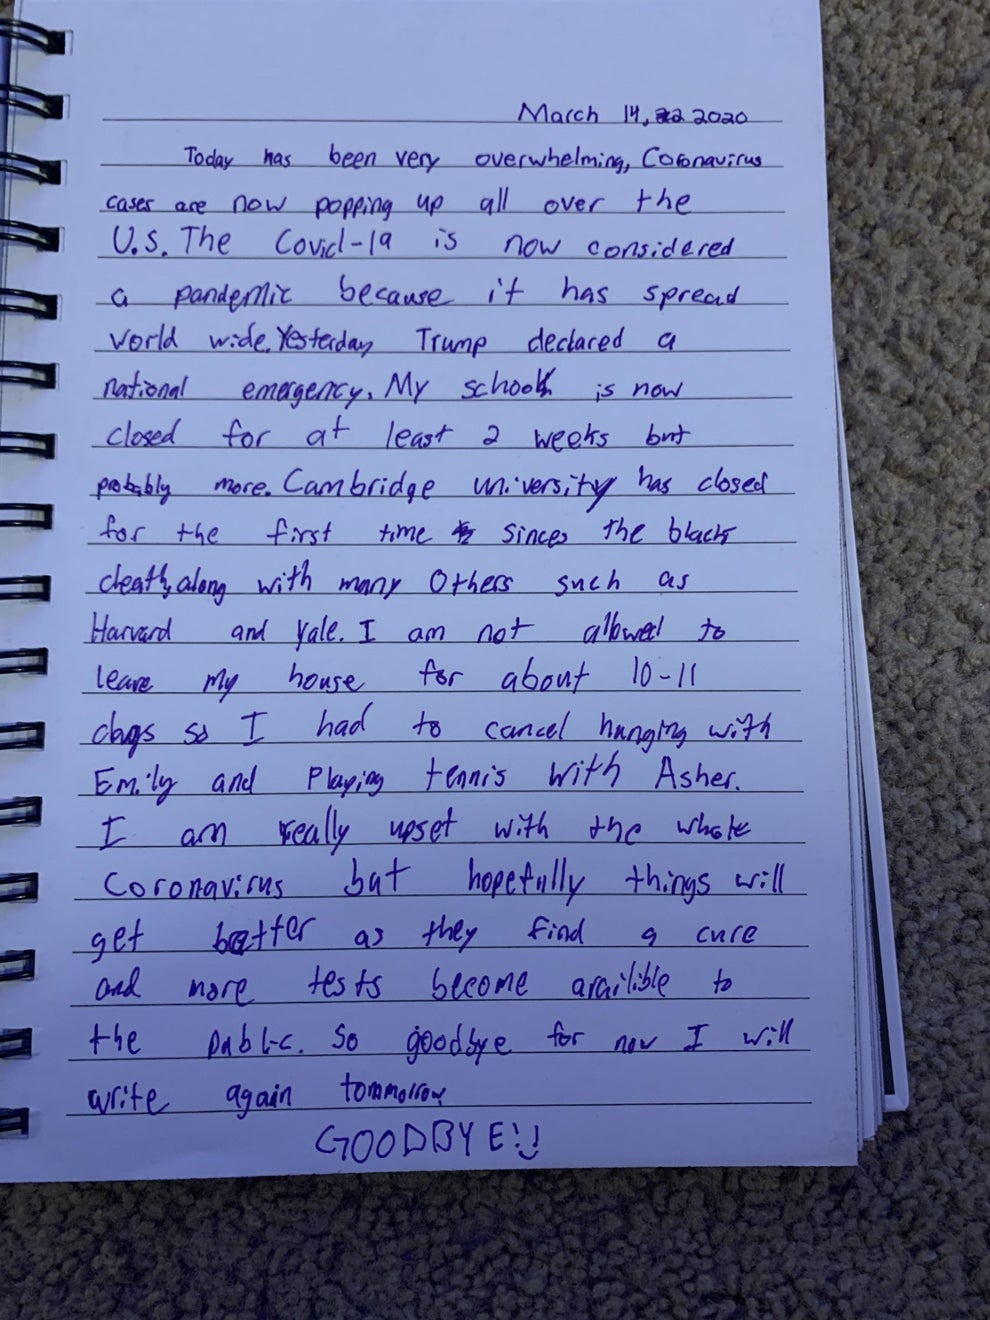 March 14, 2020
Today has been very overwhelming, Coronavirus
cases are now popping up all over the
U.S. The Covid-19 is now considered
a pandemic because it has spread
world wide. Yesterday Trump declared a
national emergency. My school is now
closed for at least 2 weeks but
probably more. Cambridge university has closed
for the first time sinces the black
death, along with many Others such as
Harvard and Yale. I am not allowed to
leave my house for about 10-11
days so I had to cancel hanging with
Emily and Playing tennis with Asher.
I am really upset with the whole
Coronavirus but hopefully things will
get better as they find a cure
and more tests become availible to
the public. So goodbye for now I will
write again tommorrow
GOODBYE!:)